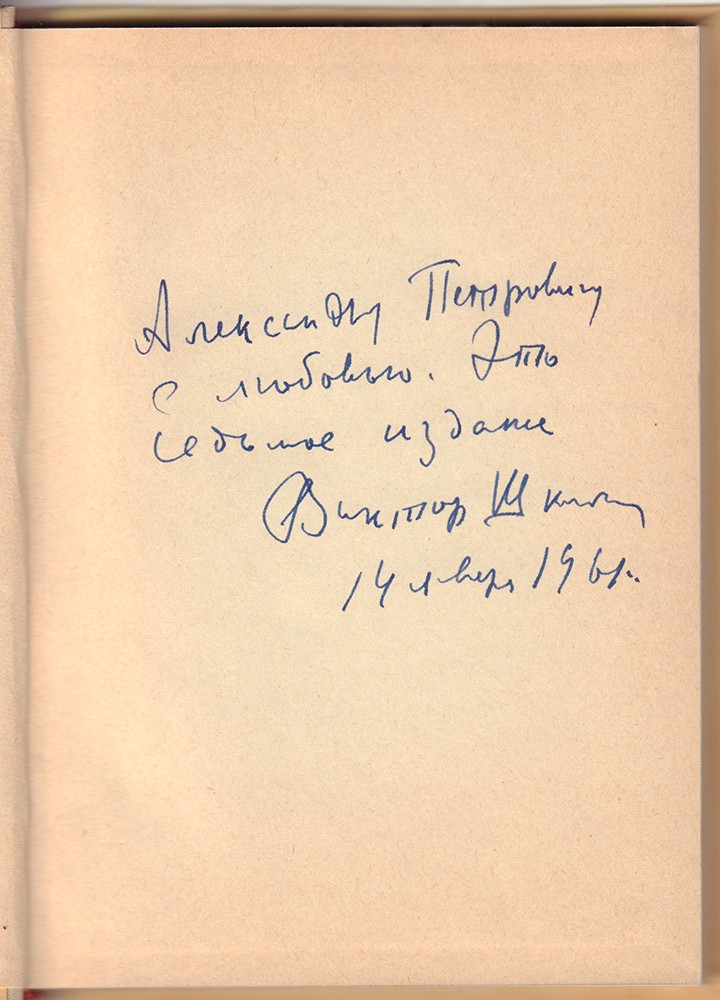 Александру Петровичу
с любовью. Это
седьмое издание
Виктор Шкловский
14 января 1961 г.